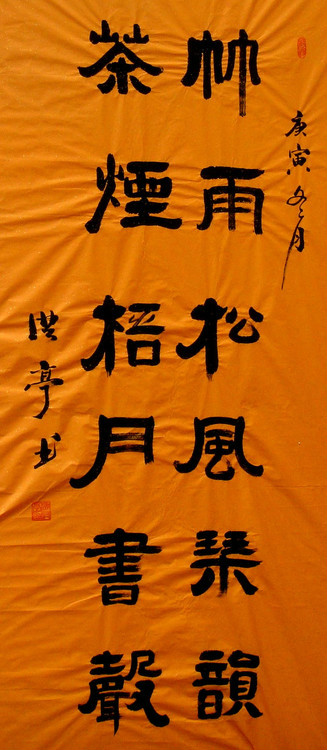 庚寅冬月
竹雨松風琴韻
茶煙梧月書聲
洪亭书